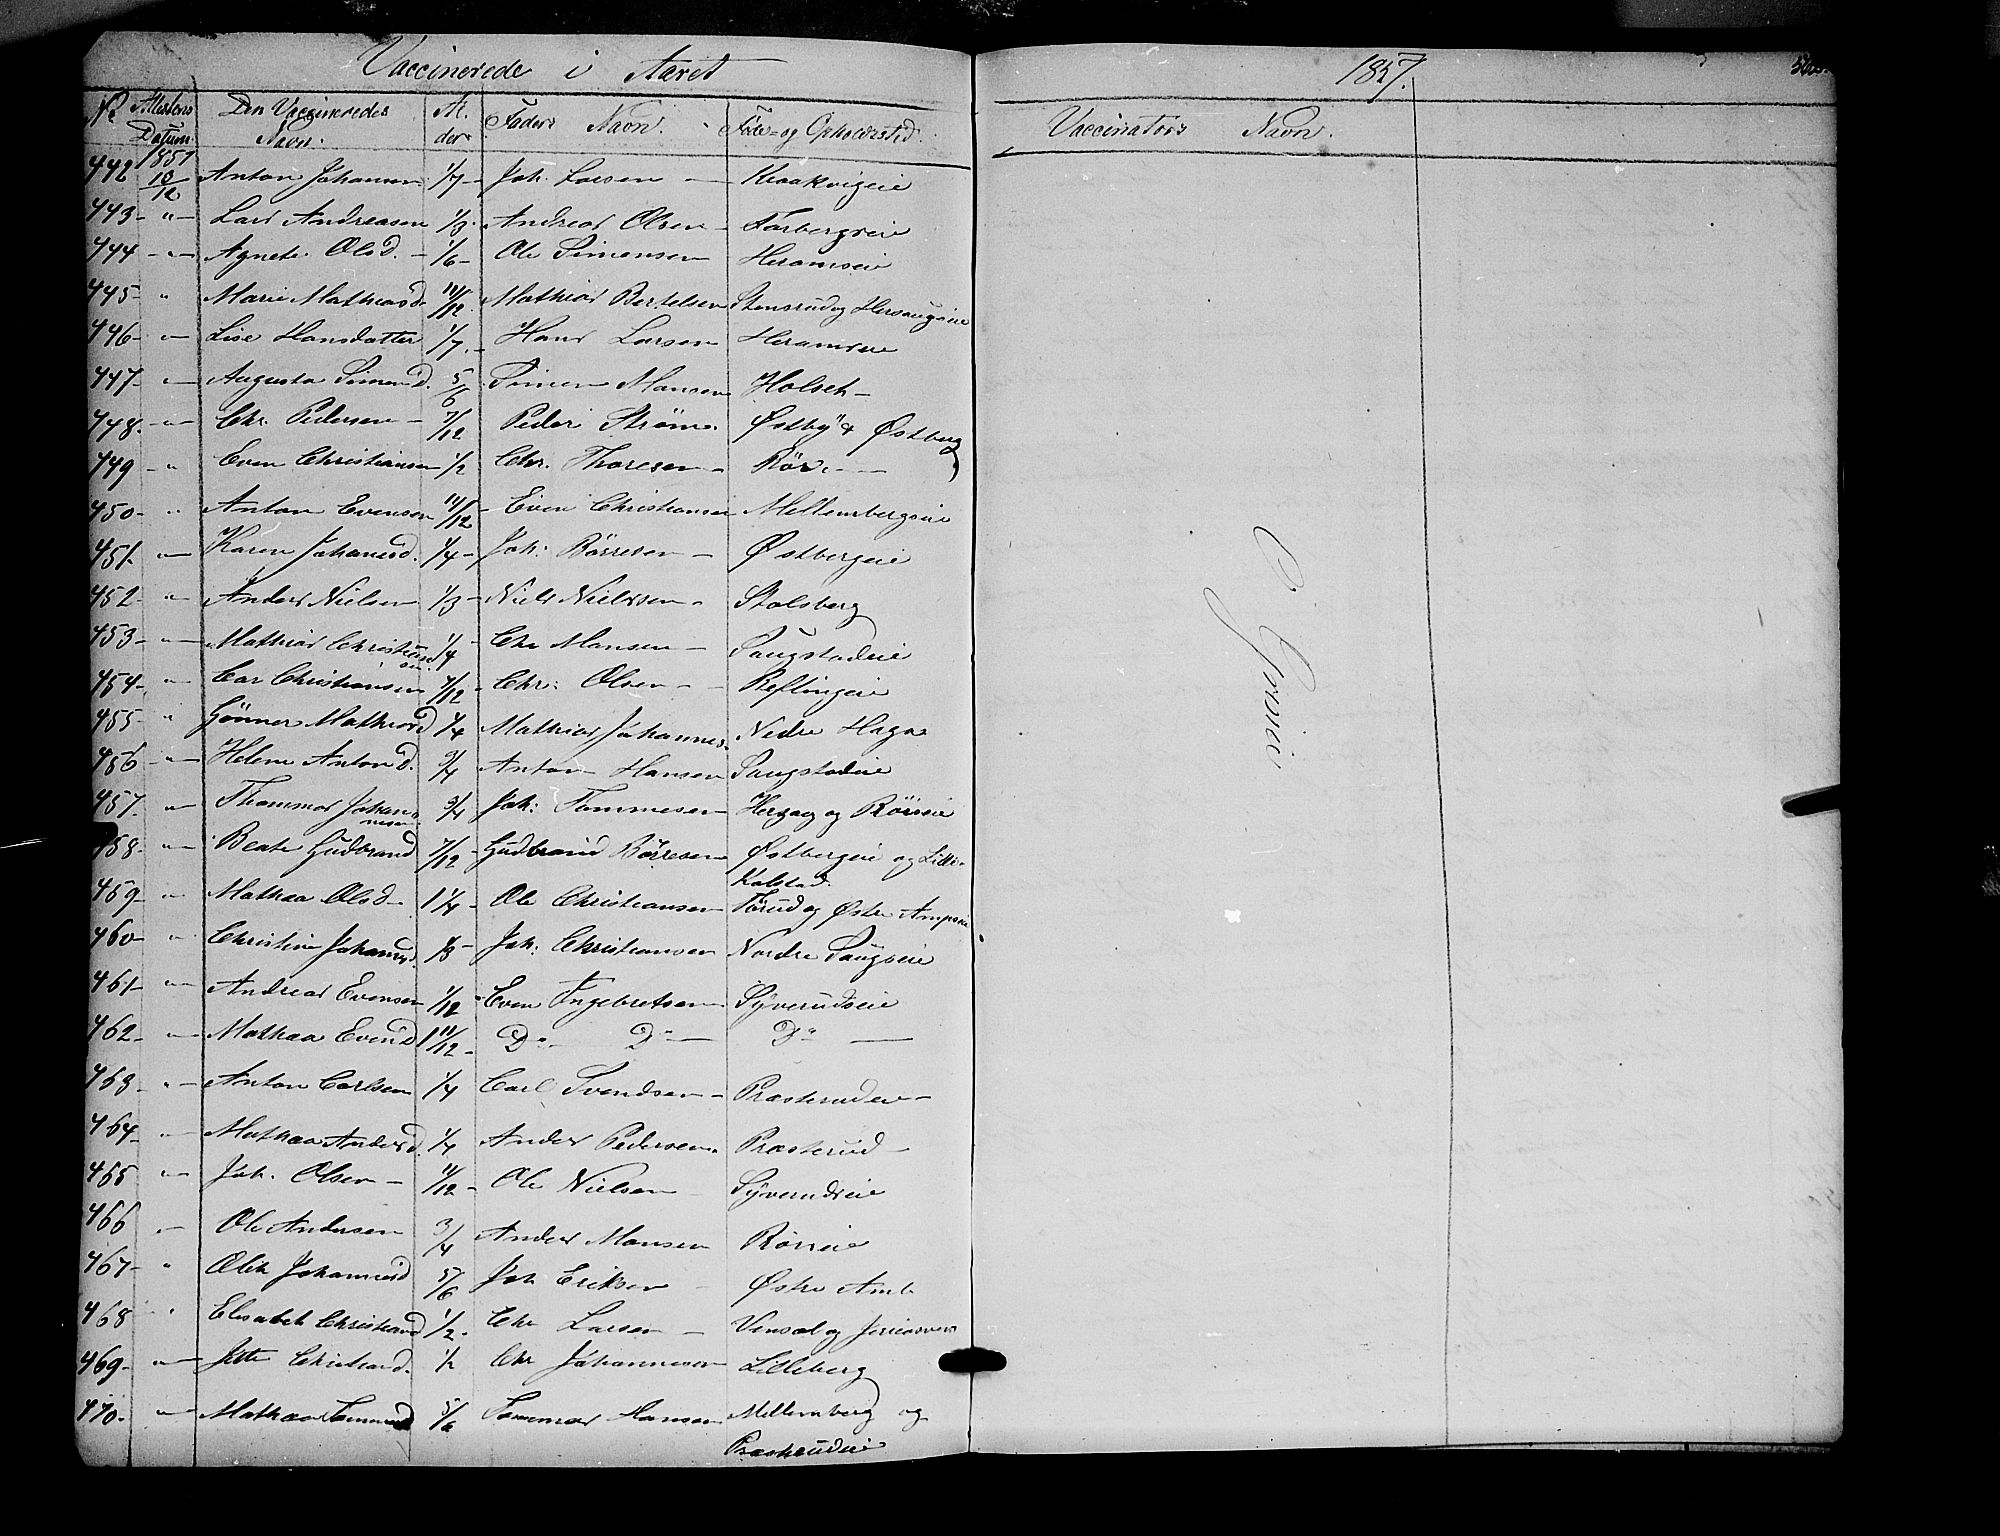 Vaccinerede i Aaret 1857.
No Attestens Datum. Den Vaccineredes Navn. Alder Faders Navn. Føde- og Opholdssted. Vaccinators Navn.
442 1857 10/12 Anton Johansen 1/7 - Joh. Larsen - Kraakvigeie
443 - " - Lars Andreasen 1/3. Andreas Olsen - Farbergseie
444 - " - Agnete Olsd. - 1/6 - Ole Simensen Heramseie
445 - " Marie Mathiasd. 11/12. Mathias Bertelsen Stensrud og Hersougeie
446 - " - Lise Hansdatter 1/7. - Hans Larsen - Heramseie
447 - " Augusta Simensd. 5/6 Simen Hansen Holseth -
448. - " - Chr. Pedersen - 7/12 Peder Strøm. Østby & Østberg
449 - " Even Christiansen 1/2 Chr. Thoresen - Rør. - -
450 - " Anton Evensen 11/12 - Even Christiansen Mellembergseie
451. " - Karen Johannesd. 1/4 - Joh: Børresen - Østbergeie
452 - " - Anders Nielsen 1/3 - Niels Nielssen - Stalsberg
453 - " - Mathias Christiansen 1/4 - Chr Hansen - Saugstadeie
454 - " - Car Christiansen 7/12 - Chr: Olsen - - Reflingeie
455 - " Gønner Mathiasd 1/4 Mathias Johannes. Nedre Hagen
456 - " - Helene Antond. 3/4 Anton Hansen Saugstadeie
457. " - Thommas Johannesen 3/4 Joh: Tommesen - Herzog og Rørseie
458. - " - Beate Gudbrand 7/12 - Gudbrand Børresen Østbergeie og Lille-
Kalstad.
459 - " - Mathea Olsd - 1 1/4 - Ole Christiansen - Tørud og Østre Ampseie
460 - " Christine Johannesd. 1/3 - Joh: Christiansen Nordre Saugseie
461 - " - Andreas Evensen 1/12 - Even Ingebretsen - Syverudseie
462 - " - Mathea Evensd 1 11/12 - Do - Do - Do -
463 - " - Anton Carlsen 1/4 Carl Svendsen - Præsterudeie -
464 - " - Mathea Andersd. 1/4 Anders Pedersen. Præsterud -
465 " - Joh. Olsen - 11/12 - Ole Nielsen - Syverudseie
466 " - Ole Andersen 3/4 Anders Hansen Rørseie
467 - " Oline Johannesd 5/6 Joh Eriksen - Østre Amb
468 " Elisabeth Christiansd 1/2 - Chr Larsen - Vensæl og
469 - " - Jette Christiansd. 1/2 Chr Johannesen Lilleberg
470. " - Mathea Tommesd 5/6 Tommas Hansen Mellemberg og
Præsterudeie